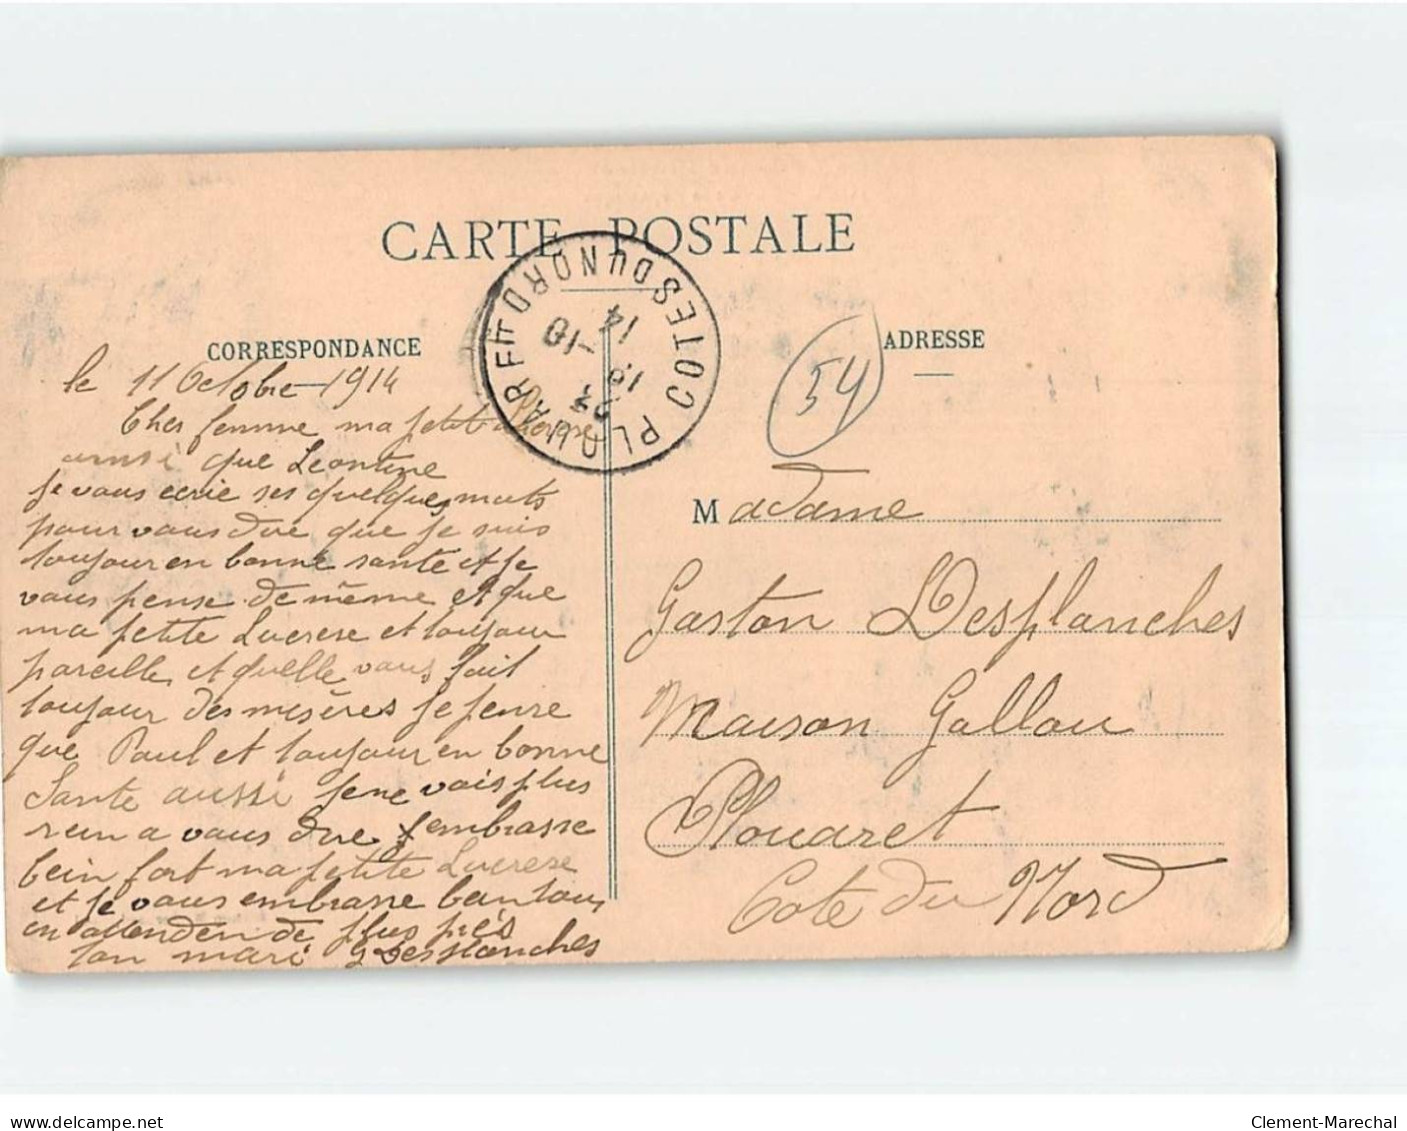 CARTE POSTALE
CORRESPONDANCE
ADRESSE
PLOUARET COTES DU NORD
18 -10
14
54
le 11 Octobre - 1914
Cher femme ma petit
ainsi que Leontine
Je vous ecrie ses quelques mots
pour vous dire que je suis
toujour en bonne sante et je
vous pense de même et que
ma petite Lucrese et toujour
pareille et quelle vous fait
toujour des misères je pense
que Paul et toujour en bonne
Sante aussi je ne vois plus
rien a vous dire j'embrasse
bein fort ma petite Lucrese
et je vous embrasse bien tous
en attenden de plus près
ton mari G Desplanches
Madame
Gaston Desplanches
Maison Gallou
Plouaret
Cote du Nord
delcampe.net
Clement-Marechal